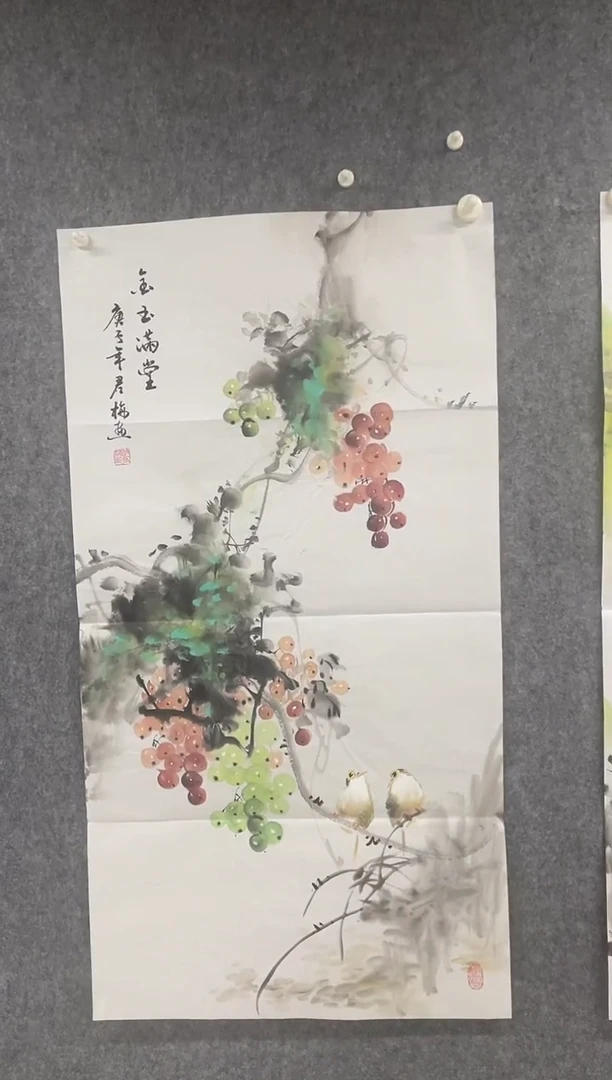 金玉满堂
庚子年君梅画